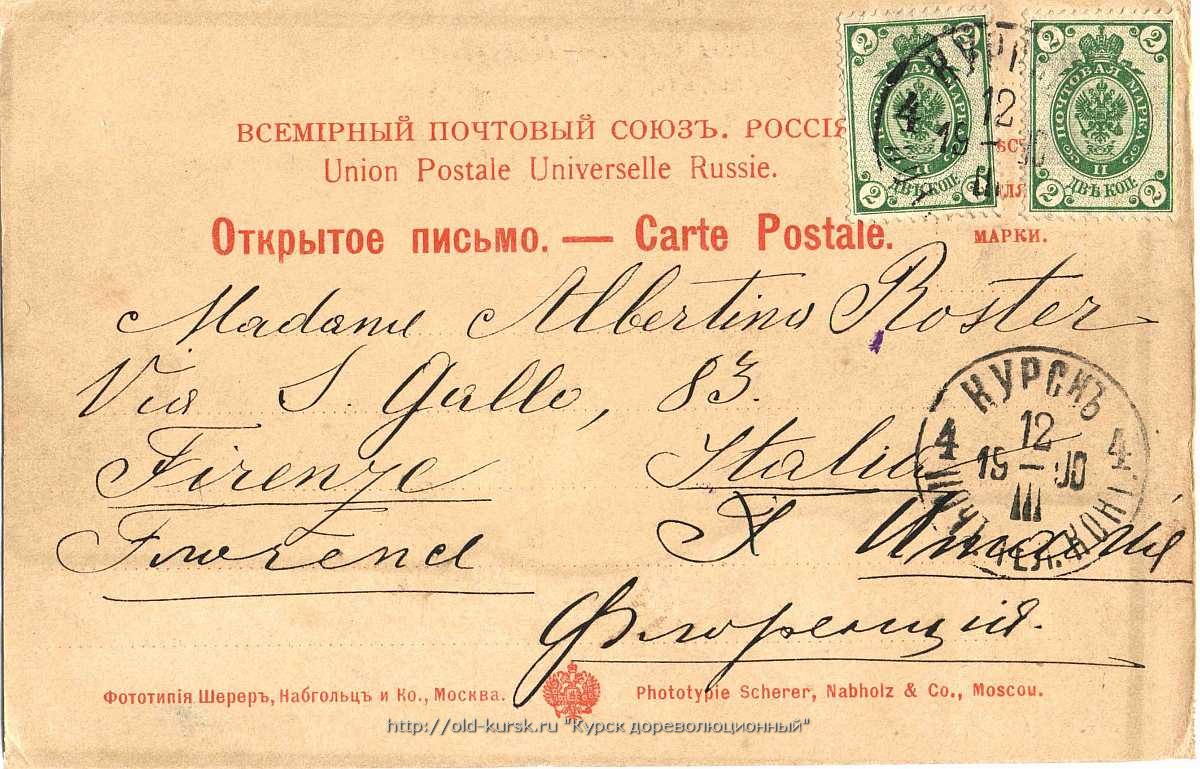 ВСЕМІРНЫЙ ПОЧТОВЫЙ СОЮЗЪ. РОССІЯ
Union Postale Universelle Russie.
Открытое письмо. — Carte Postale.
МАРКИ.
2 2
ПОЧТОВАЯ МАРКА
II
ДВѢ КОП.
2 2
2 2
ПОЧТОВАЯ МАРКА
II
ДВѢ КОП.
2 2
КУРС
4 12
19 — 00
III
Madame Albertina Roster
Via S. Gallo, 83.
Firenze Italia
Италія
Флоренція.
КУРСКЪ
4 12 4
19 — 00
III
ПОЧТ. ТЕЛ. КОНТ.
Фототипія Шереръ, Набгольцъ и Ко., Москва.
Phototypie Scherer, Nabholz & Co., Moscou.
http://old-kursk.ru "Курск дореволюционный"